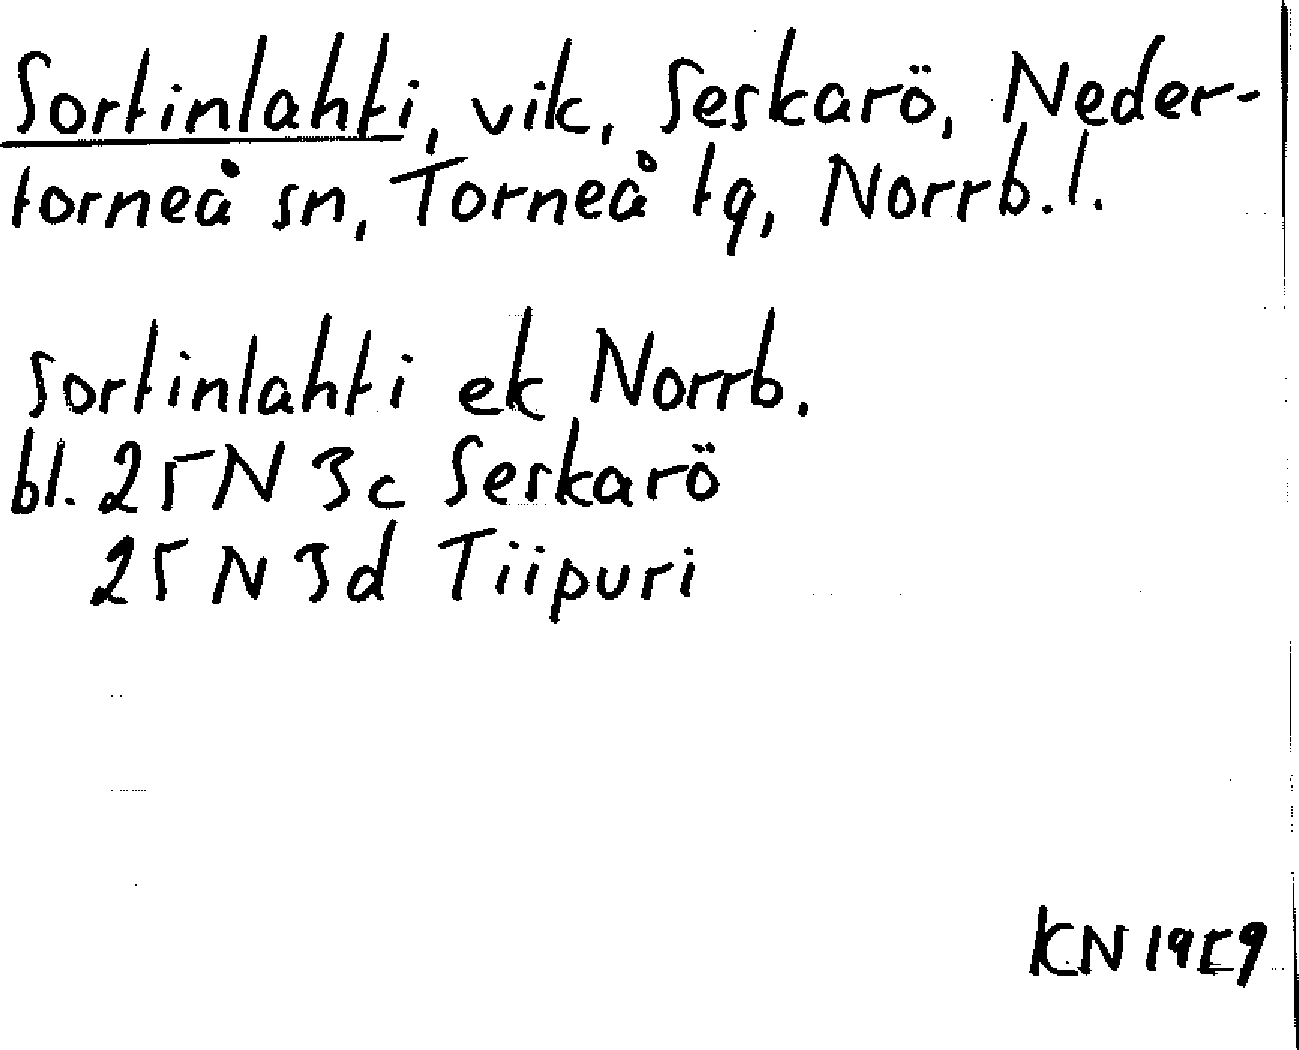 Sortinlahti, vik, Seskarö, Neder-
torneå sn, Torneå tg, Norrb. l.
Sortinlahti ek Norrb.
bl. 25 N 3c Seskarö
25 N 3d Tiipuri
KN 1959